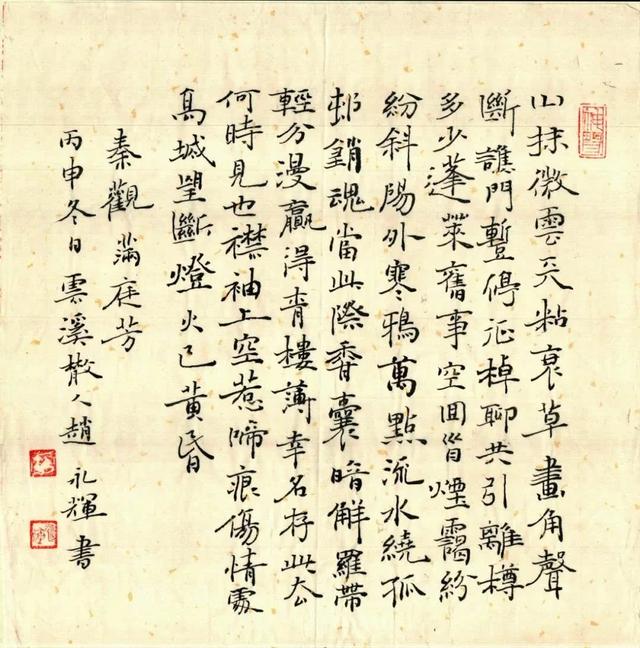 山抹微雲天粘衰草畫角聲
斷譙門暫停征棹聊共引離樽
多少蓬萊舊事空回首煙靄紛
紛斜陽外寒鴉萬點流水繞孤
邨銷魂當此際香囊暗解羅帶
輕分漫贏得青樓薄幸名存此去
何時見也襟袖上空惹啼痕傷情處
高城望斷燈火已黃昏
秦觀 滿庭芳
丙申冬日雲溪散人趙永輝書